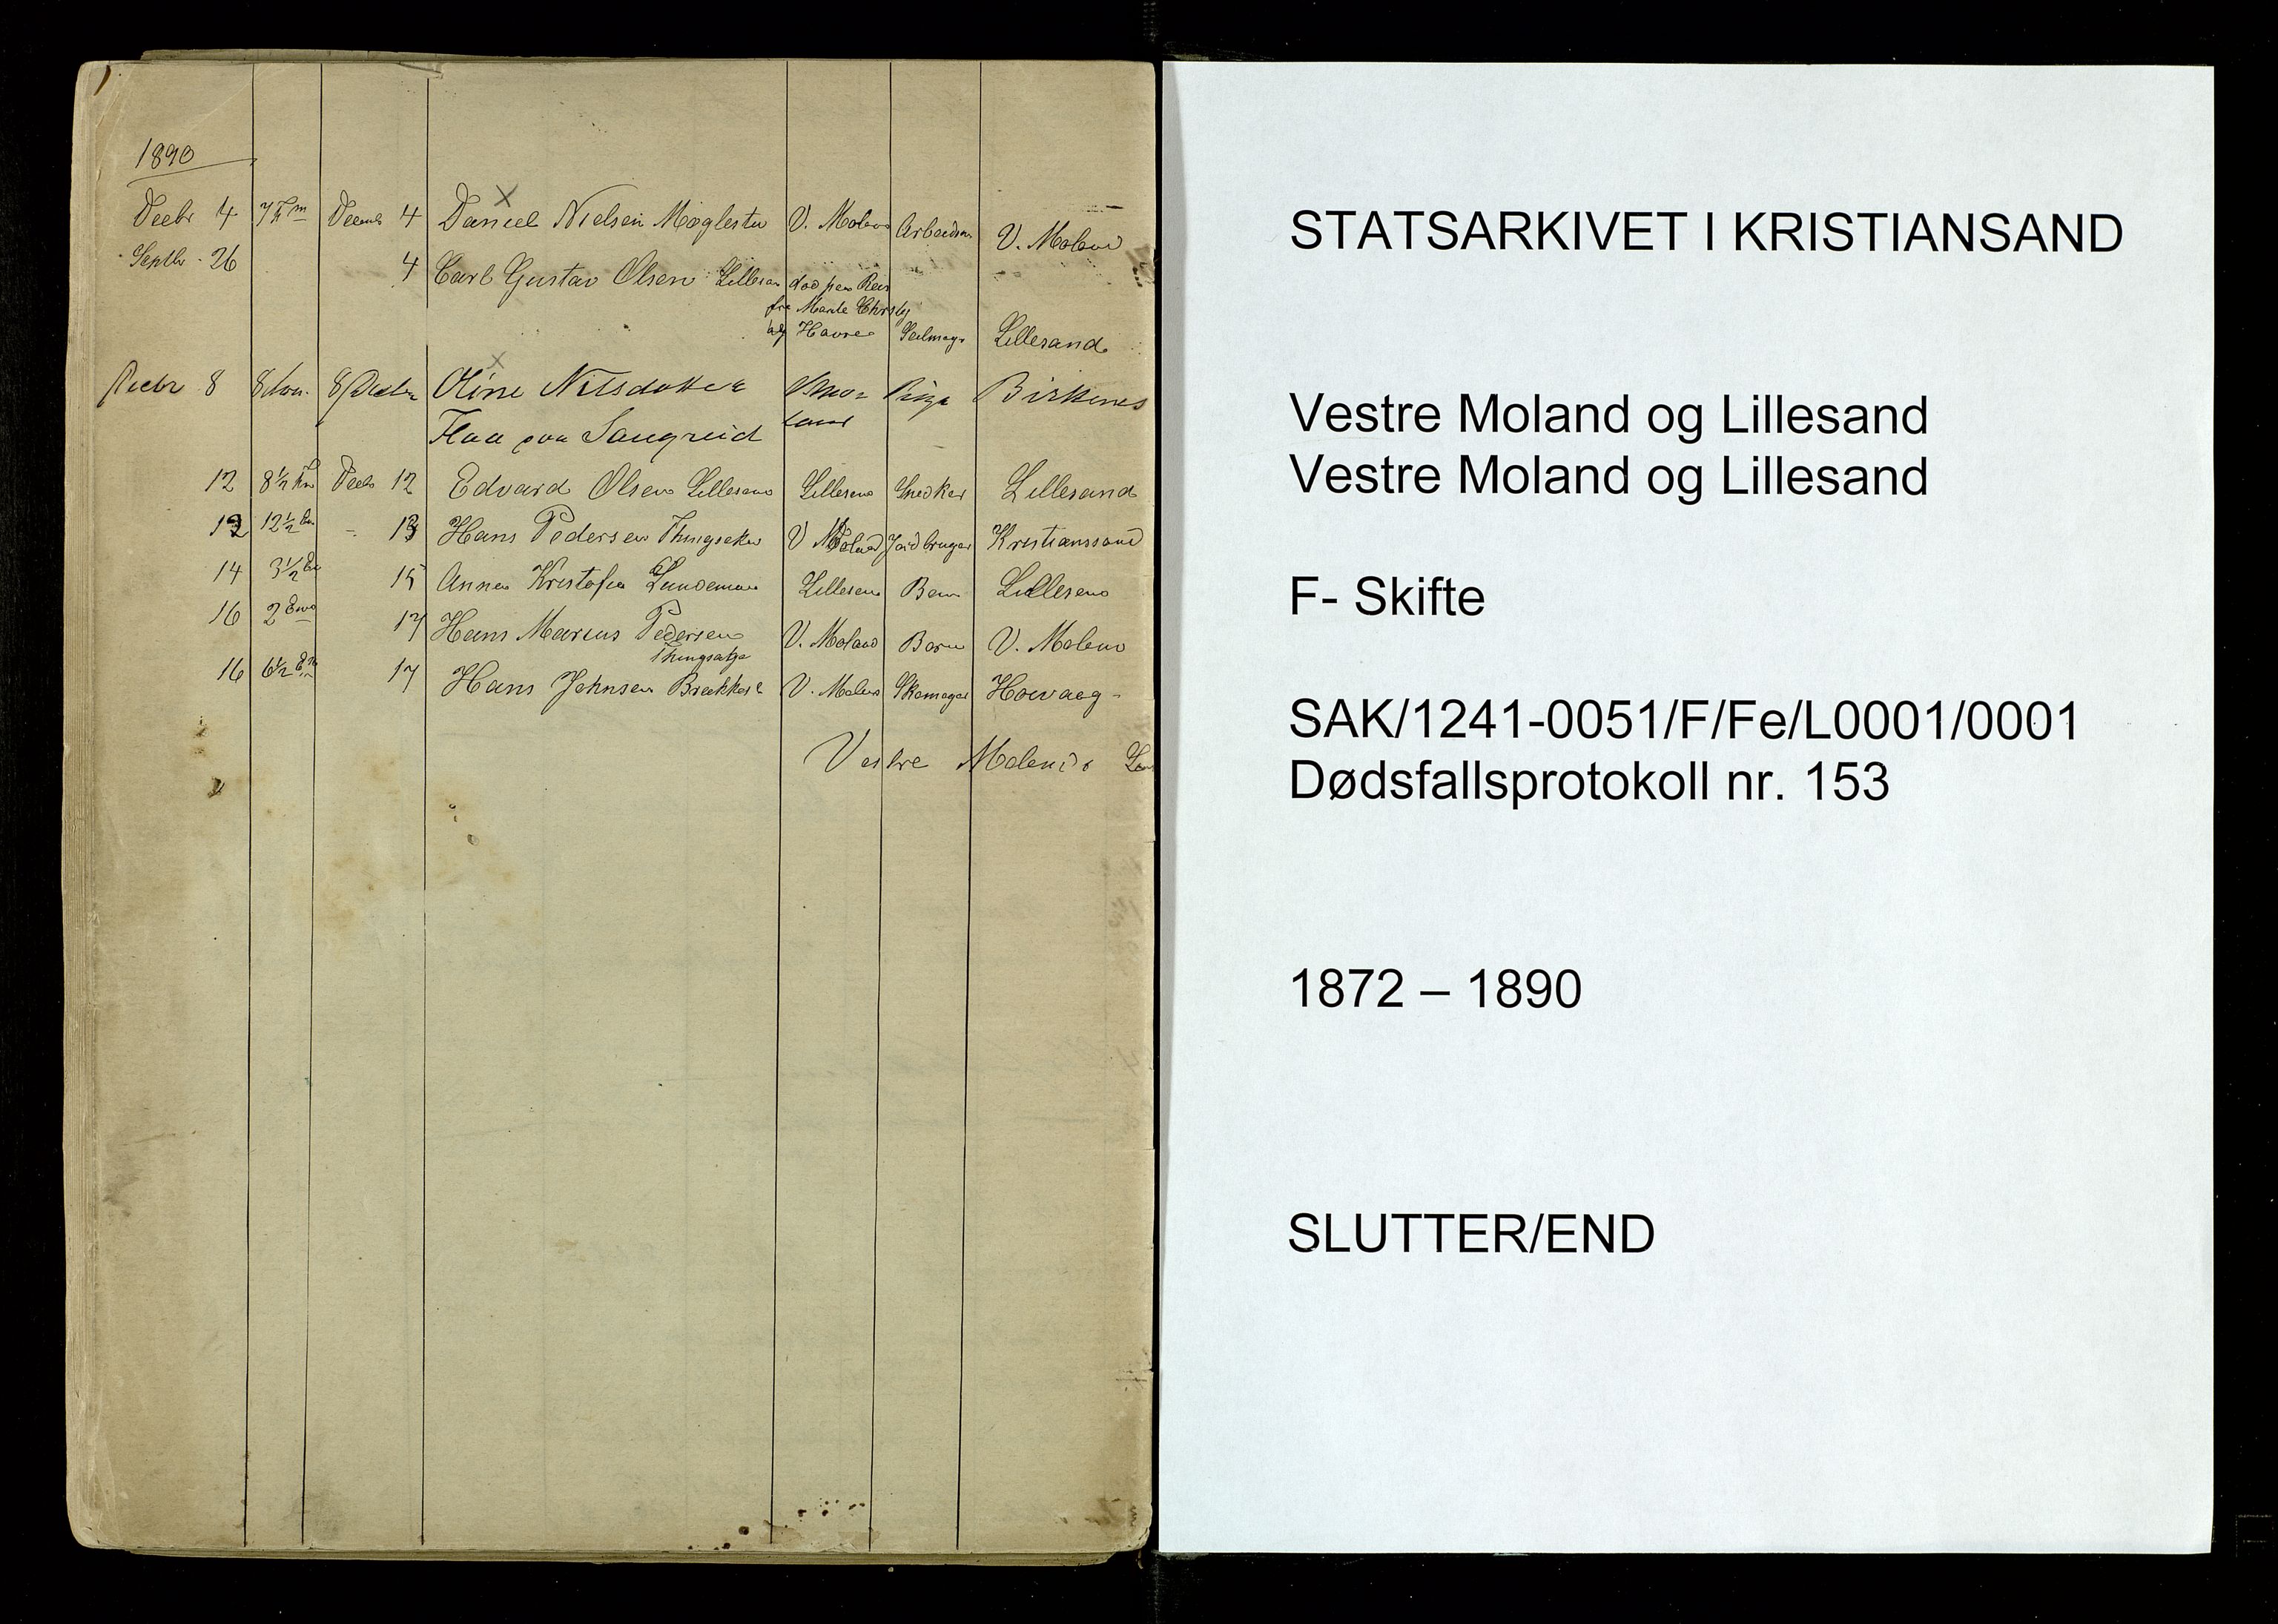 1890
Decbr 4 7 Fm Decmb 4 Daniel Nielsen Møglestu V. Moland Arbeidsm V. Moland
Septbr. 26 4 Carl Gustav Olsen Lillesan død paa Reis
fra
af Havre Seilmag. Lillesand
Decbr 8 8 8 Decbr Oline Nilsdatter Pige Birkenes
Flaa paa Saugreid land
12 8½ Fm Decb 12 Edvard Olsen Lillesand Lillesand Snedker Lillesand
12 12½ Em - 13 Hans Pedersen V Moland Jordbruger Kristianssand
14 3½ Em 15 Anna Kristofa Lundeman Lillesand Barn Lillesand
16 2 Em 17 Hans Marius Pedersen V. Moland Barn V. Moland
16 6½ Em 17 Hans Johnsen Brækkes V. Moland Skomager Høivaag
Vestre Molands
STATSARKIVET I KRISTIANSAND
Vestre Moland og Lillesand
Vestre Moland og Lillesand
F- Skifte
SAK/1241-0051/F/Fe/L0001/0001
Dødsfallsprotokoll nr. 153
1872 – 1890
SLUTTER/END